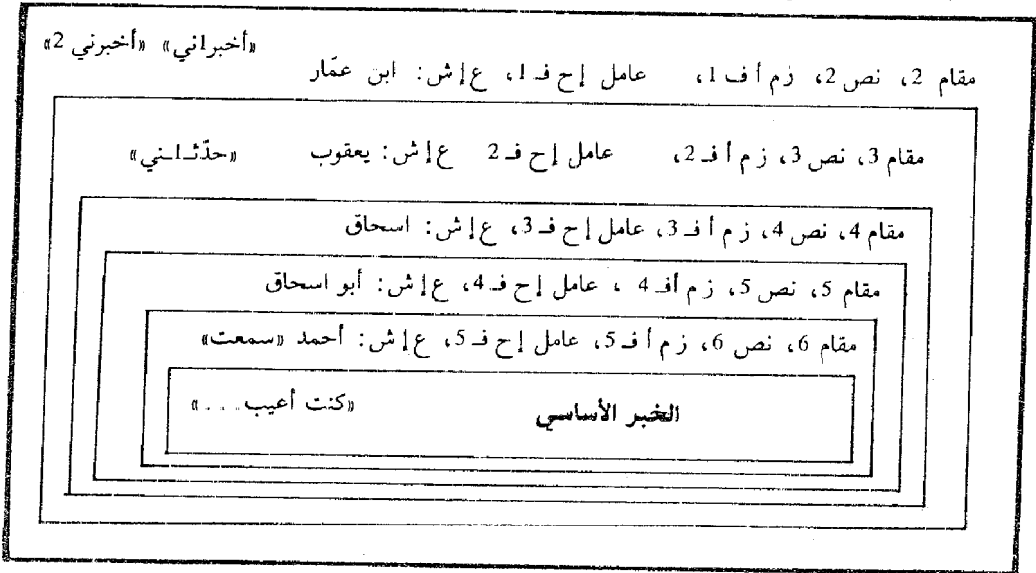 «أخبراني» «أخبرني 2»
مقام 2، نص 2، ز م أ ف 1، عامل إ ح فـ 1، ع إ ش: ابن عمّار
مقام 3، نص 3، ز م أ فـ 2، عامل إ ح فـ 2 ع إ ش: يعقوب «حدّثـاـني»
مقام 4، نص 4، ز م أ فـ 3، عامل إ ح فـ 3، ع إ ش: اسحاق
مقام 5، نص 5، ز م أفـ 4 ، عامل إ ح فـ 4، ع إ ش: أبو اسحاق
مقام 6، نص 6، ز م أ فـ 5، عامل إ ح فـ 5، ع إ ش: أحمد «سمعت»
الخبر الأساسي «كنت أعيب....»